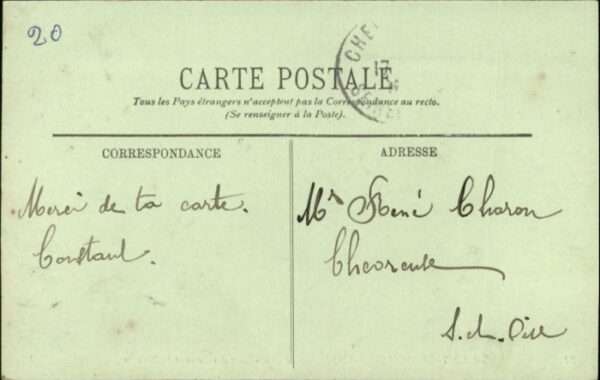 20
CHE
17
CARTE POSTALE
Tous les Pays étrangers n'acceptent pas la Correspondance au recto.
(Se renseigner à la Poste).
CORRESPONDANCE
ADRESSE
Merci de ta carte.
Constant.
Mr René Charon
Chevreuse
S.-et-Oise